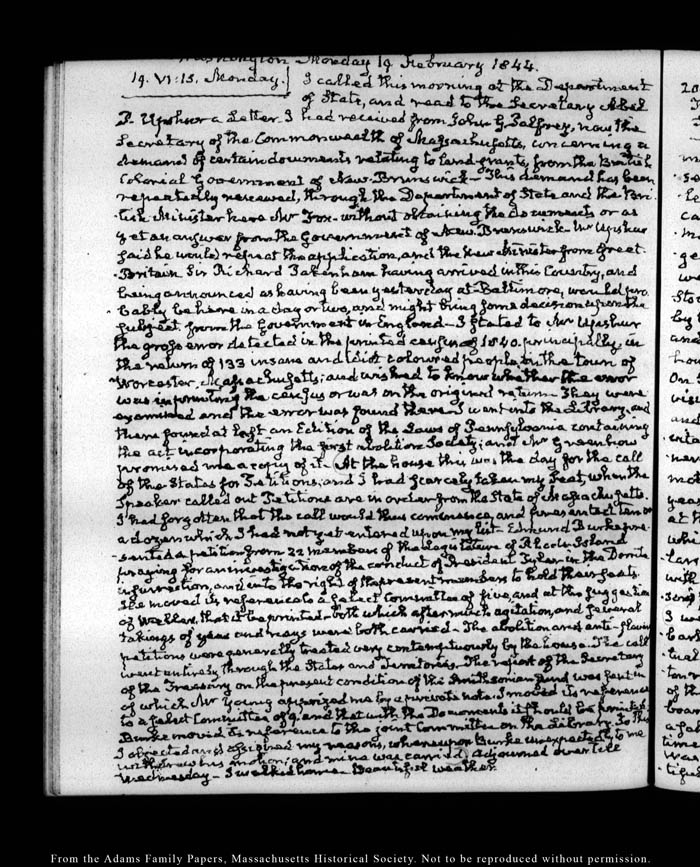 Washington Monday 19 February 1844.
19. VI:15. Monday. I called this morning at the Department
of State, and read to the Secretary Abel
P. Upshur a Letter I had received from John G. Palfrey, now the
Secretary of the Commonwealth of Massachusetts, concerning a
demand of certain documents relating to land grants, from the British
Colonial Government of New-Brunswick - This demand has been
repeatedly renewed, through the Department of State and the Bri-
tish Minister here Mr Fox - without obtaining the documents or as
yet an answer from the Government of New Brunswick - Mr Upshur
said he would repeat the application, and the New Minister from Great
Britain Sir Richard Pakenham having arrived in this Country, and
being announced as having been yesterday at Baltimore, would pro
bably be here in a day or two, and might bring some decision upon the
subject from the Government in England - I stated to Mr Upshur
the gross error detected in the printed census of 1840. principally, in
the return of 133 insane and idiot coloured people in the town of
Worcester, Massachusetts; and wished to know whether the error
was in printing the census or was on the original return - They were
examined and the error was found there - I went into the Library, and
there found at last an Edition of the Laws of Pennsylvania containing
the act incorporating the first abolition Society; and Mr Greenhow
promised me a copy of it - At the house this was the day for the call
of the States for Petitions, and I had scarcely taken my seat, when the
Speaker called out Petitions are in order from the State of Massachusetts.
I had forgotten that the call would thus commence, and presented ten or
a dozen which I had not yet entered upon my list - Edmund Burke pre-
sented a petition from 22 members of the Legislature of Rhode Island
praying for an investigation of the conduct of President Tyler in the Dorrite
insurrection, and into the right of the present members to hold their seats.
He moved its reference to a select Committee of five, and at the suggestion
of Weller, that it be printed - both which after much agitation, and several
takings of yeas and nays were both carried - The abolition and anti-slavery
petitions were generally treated very contemptuously by the house. The call
went entirely through the States and Territories. The report of the Secretary
of the Treasury on the present condition of the Smithsonian fund was sent in
of which Mr Young apprized me by a private note. I moved its reference
to a select Committee of 9. and that with the Documents it should be printed.
Burke moved its reference to the joint Committee on the Library. To this
I objected and assigned my reasons, whereupon Burke unexpectedly to me
withdrew his motion; and mine was carried. adjourned over till
Wednesday - I walked home - Beautiful weather.
From the Adams Family Papers, Massachusetts Historical Society. Not to be reproduced without permission.